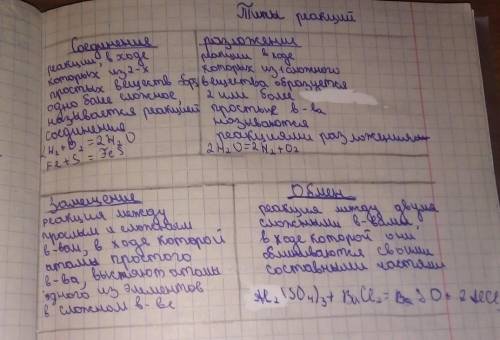 Типы реакций
Соединение
реакции, в ходе
которых из 2-х
простых веществ обр.
одно более сложное,
называется реакцией
соединения
2H₂+O₂=2H₂O
Fe+S=FeS
разложения
реакции в ходе
которых из 1 сложного
вещества образуется
2 или более
простые в-ва
называются
реакциями разложения
2H₂O=2H₂+O₂
Замещение
реакция между
простым и сложным
в-вом, в ходе которой
атомы простого
в-ва, вытесняют атомы
одного из элементов
в сложном в-ве
Обмен
реакция между двумя
сложными в-вами,
в ходе которой они
обмениваются своими
составными частями
Al₂(SO₄)₃+BaCl₂=